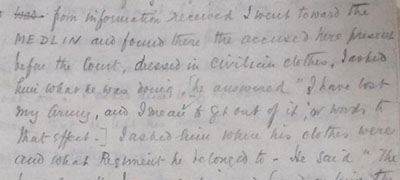 was from information received I went toward the
MEDLIN and found there the accused here present
before the Court, dressed in civilian clothes, I asked
him what he was doing, he answered "I have lost
my Army, and I mean to get out of it," or words to
that effect.] I asked him where his clothes were
and what Regiment he belonged to - He said "The